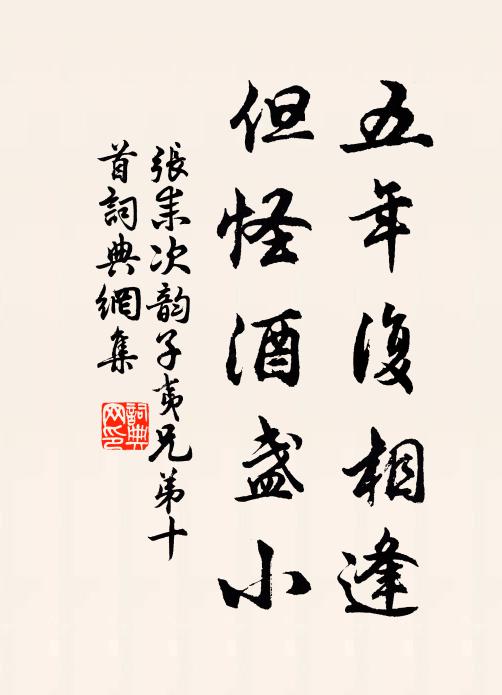 五年復相逢
但怪酒盏小
張耒次韵子夷兄弟十
首詞典網集
詞典
网印